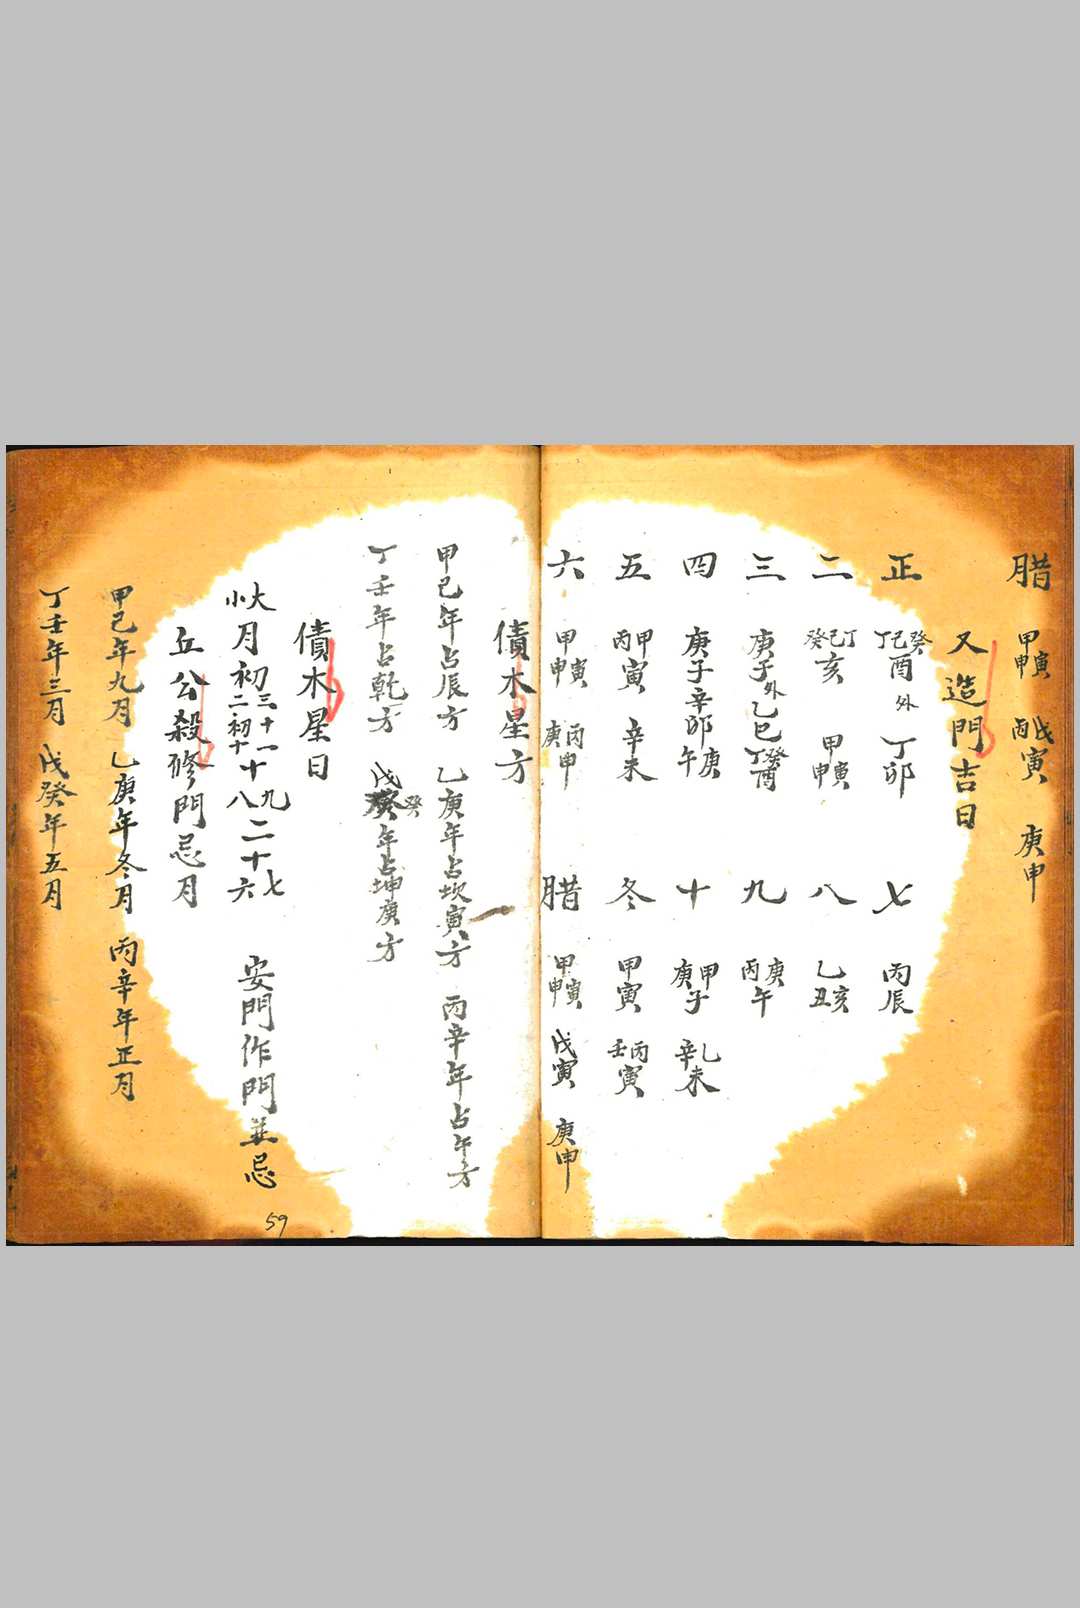 腊 甲寅 甲申 丙戊寅 庚申
又造門吉日
正 癸己丁酉 外 丁卯 七 丙辰
二 丁己癸亥 甲寅 甲申 八 乙亥 丑
三 庚子 外 乙巳 癸丁酉 九 庚丙午
四 庚子 辛卯 庚午 十 甲庚子 乙辛未
五 甲丙寅 辛未 冬 甲寅 丙壬寅
六 甲寅 甲申 丙庚申 腊 甲寅 甲申 戊寅 庚申
債木星方
甲己年占辰方 乙庚年占坎寅方 丙辛年占午方
丁壬年占乾方 戊癸年占坤庚方
債木星日
大小月初三十一十九二十七 二初十十八二十六 安門作門並忌
丘公殺修門忌月
甲己年九月 乙庚年冬月 丙辛年正月
丁壬年三月 戊癸年五月
59